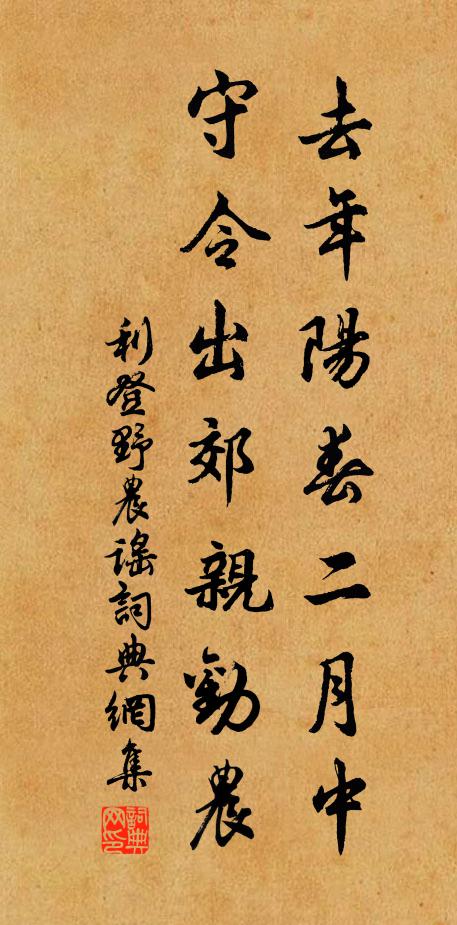 去年陽春二月中
守令出郊親勸農
利登野農謠詞典網集
詞典網印